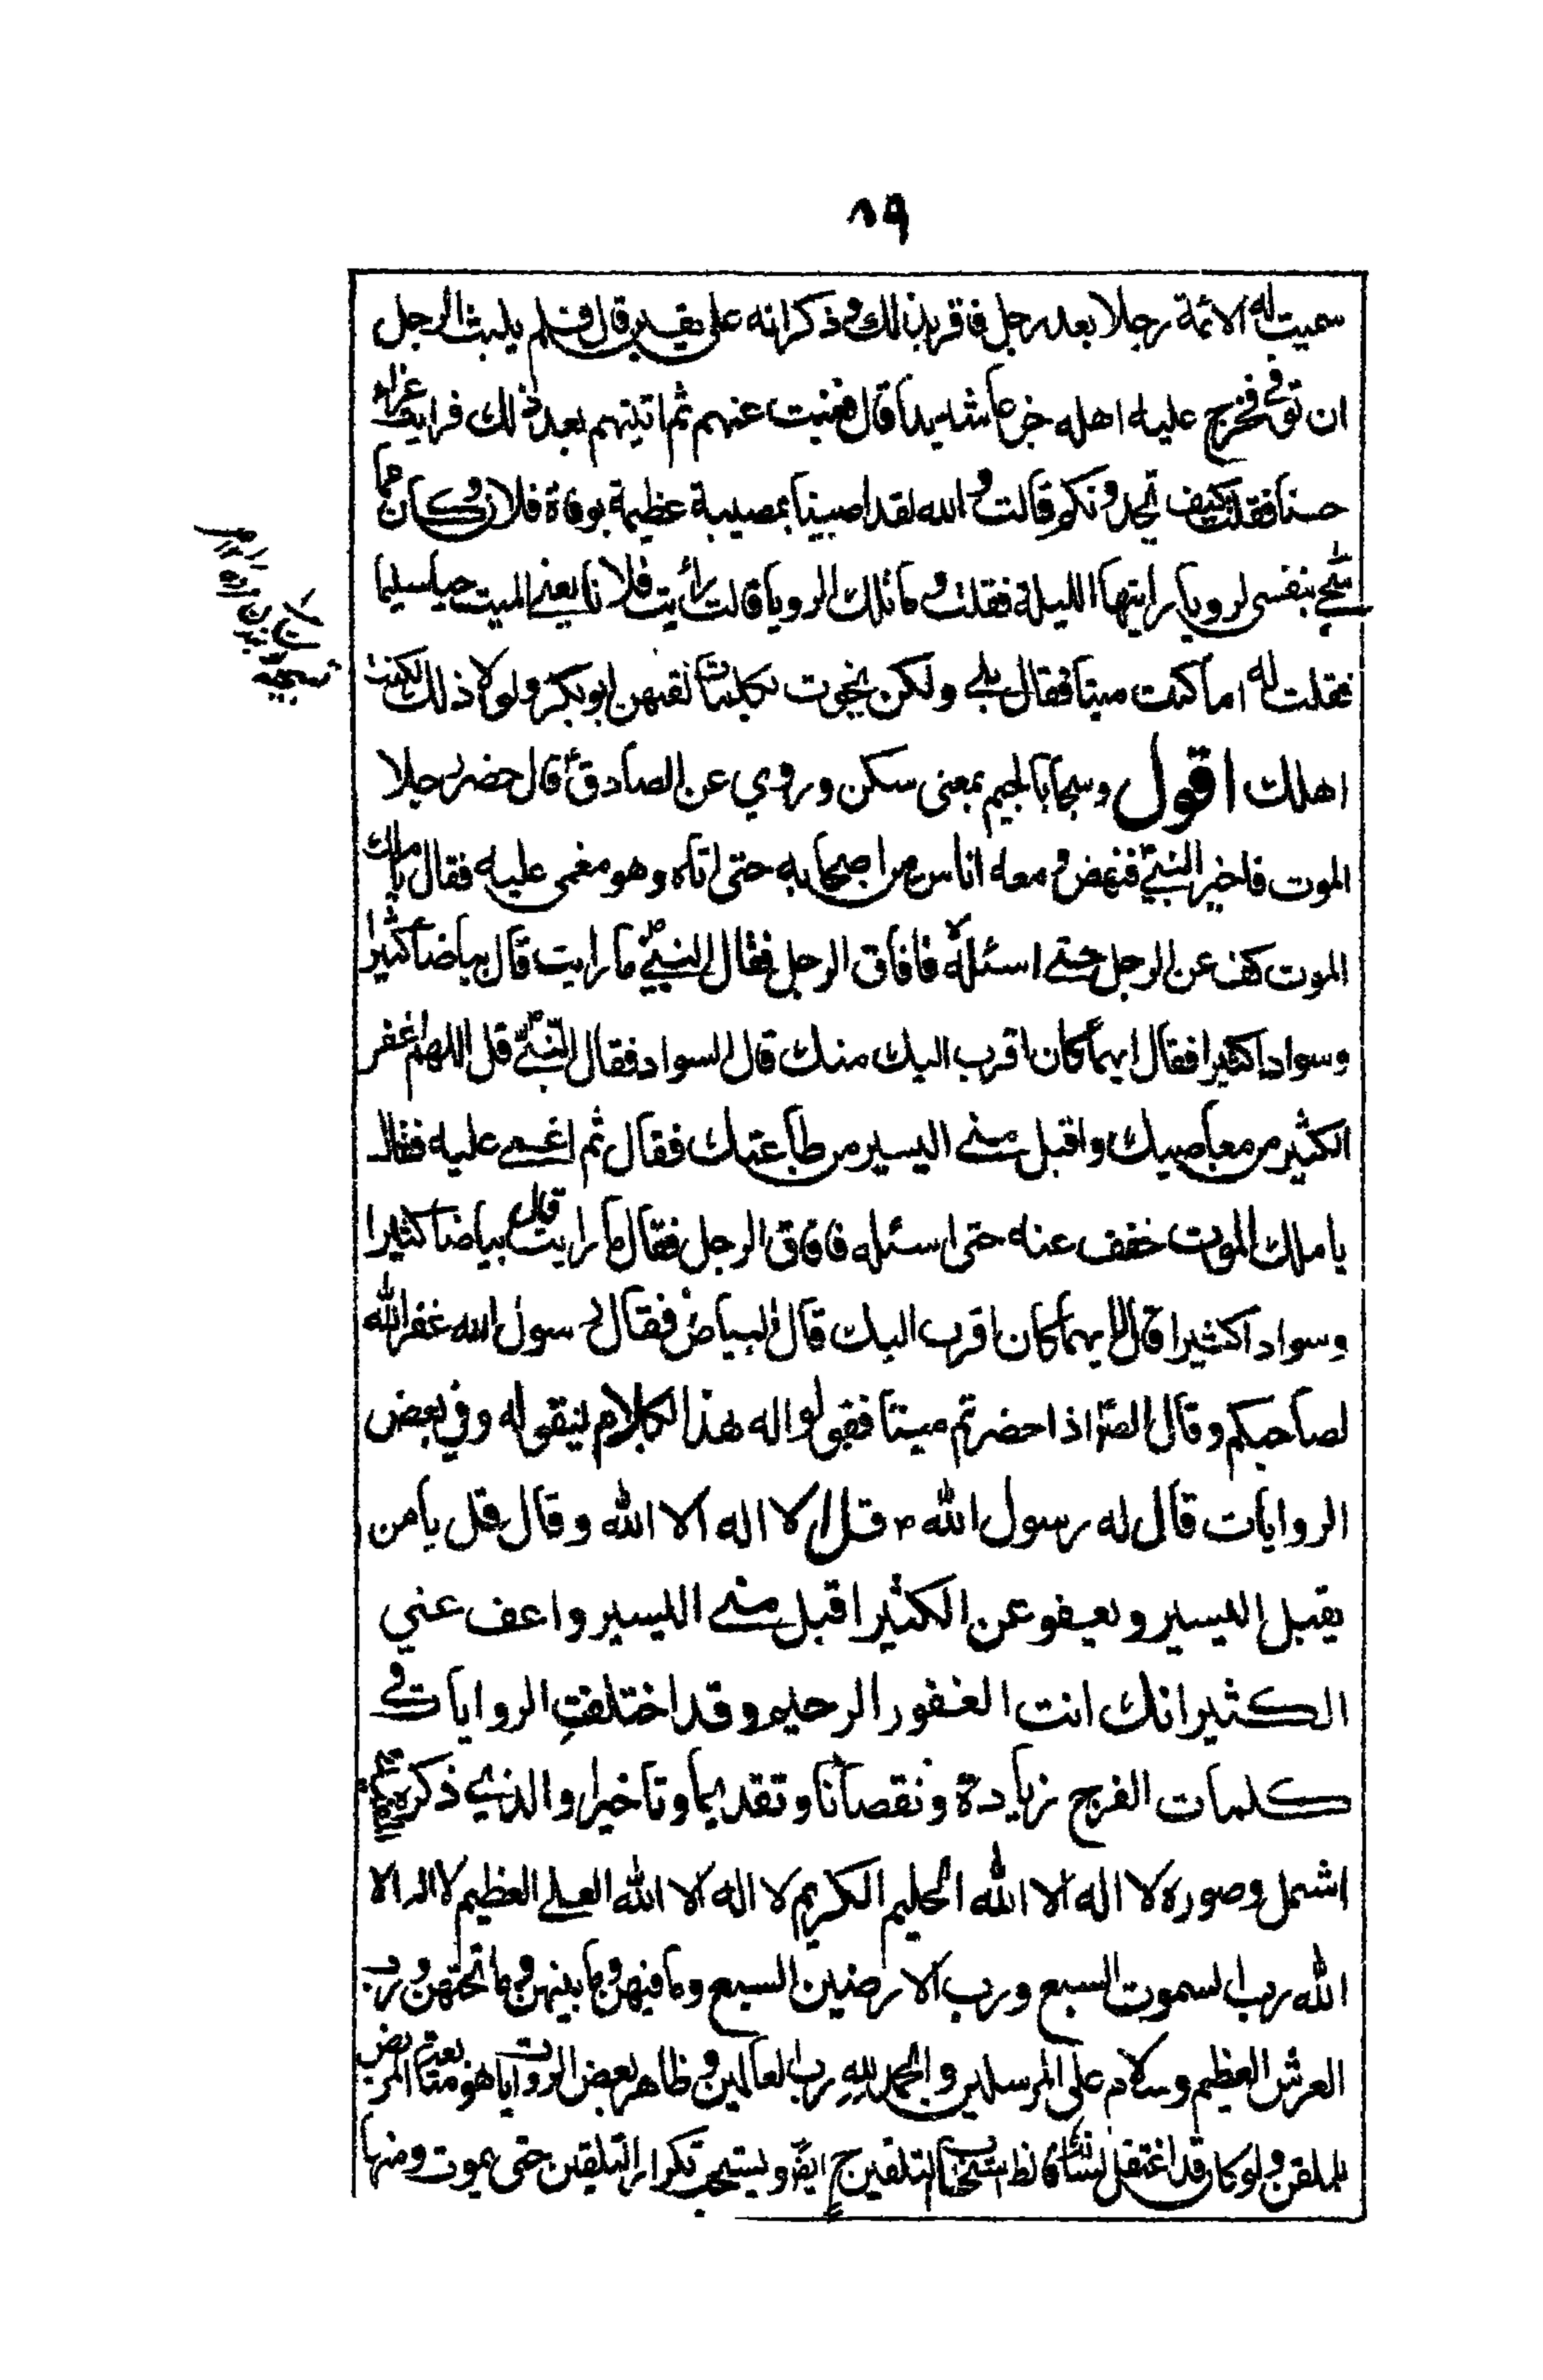 ٨٩
سميت له الائمة رجلا بعد رجل فاقر بذلك وذكر انه على يقين قال فلم يلبث الرجل
ان توفى فخرج عليه اهله جزعا شديدا قال فغبت عنهم ثم اتيتهم بعد ذلك فرايت عزاء
حسنا فقلت كيف تجدونكم قالت والله لقد اصبنا بمصيبة عظيمة بوفاة فلان وكان مما
سجى بنفسى لرويا رايتها الليلة فقلت وما تلك الرويا قالت رأيت فلانا يعنى الميت حيا سليما
فقلت له اما كنت ميتا فقال بلى ولكن نجوت بكلمات لقنهن ابو بكر ولولا ذلك لكنت
اهلك اقول وسجا بالجيم بمعنى سكن وروي عن الصادق قال حضر رجلا
الموت فاخبر النبي فنهض ومعه اناس من اصحابه حتى اتاه وهو مغمى عليه فقال يا ملك
الموت كف عن الرجل حتى اسئله فافاق الرجل فقال النبي ما رايت قال بياضا كثيرا
وسوادا كثيرا فقال ايهما كان اقرب اليك منك قال السواد فقال النبي قل اللهم اغفر
الكثير من معاصيك واقبل منى اليسير من طاعتك فقال ثم اغمى عليه فقال
يا ملك الموت خفف عنه حتى اسئله فافاق الرجل فقال ما رايت قال بياضا كثيرا
وسوادا كثيرا قال ايهما كان اقرب اليك قال البياض فقال رسول الله غفر الله
لصاحبكم وقال الصّ اذا حضرتم ميتا فقولوا له هذا الكلام ليقوله وفي بعض
الروايات قال له رسول الله ص قل لا اله الا الله وقال قل يا من
يقبل اليسير ويعفو عن الكثير اقبل منى اليسير واعف عني
الكثير انك انت الغفور الرحيم وقد اختلفت الروايات في
كلمات الفرج زيادة ونقصانا وتقديما وتاخيرا والذي ذكره
اشمل وصوره لا اله الا الله الحليم الكريم لا اله الا الله العلى العظيم لا اله الا
الله رب السموت السبع ورب الارضين السبع وما فيهن وما بينهن وما تحتهن ورب
العرش العظيم وسلام على المرسلين والحمد لله رب العالمين وظاهر بعض الروايات هو متابعة المريض
للملقن ولو كان قد اعتقل لسانه فالظ استحباب التلقين ح ايضا ويستحب تكرار التلقين حتى يموت ومنها